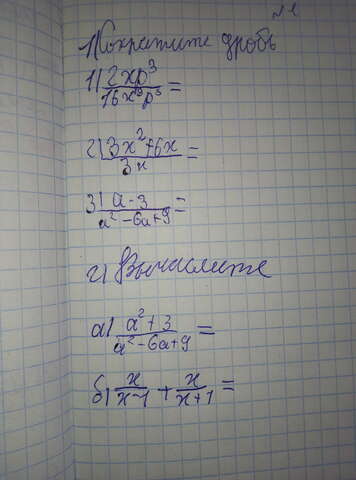 №1
1) Сократите дробь
1) 2xp³/16x³p³ =
2) 3x²+6x/3x =
3) a-3/a²-6a+9 =
2) Вычислите
а) a²+3/a²-6a+9 =
б) x/x-1 + x/x+1 =